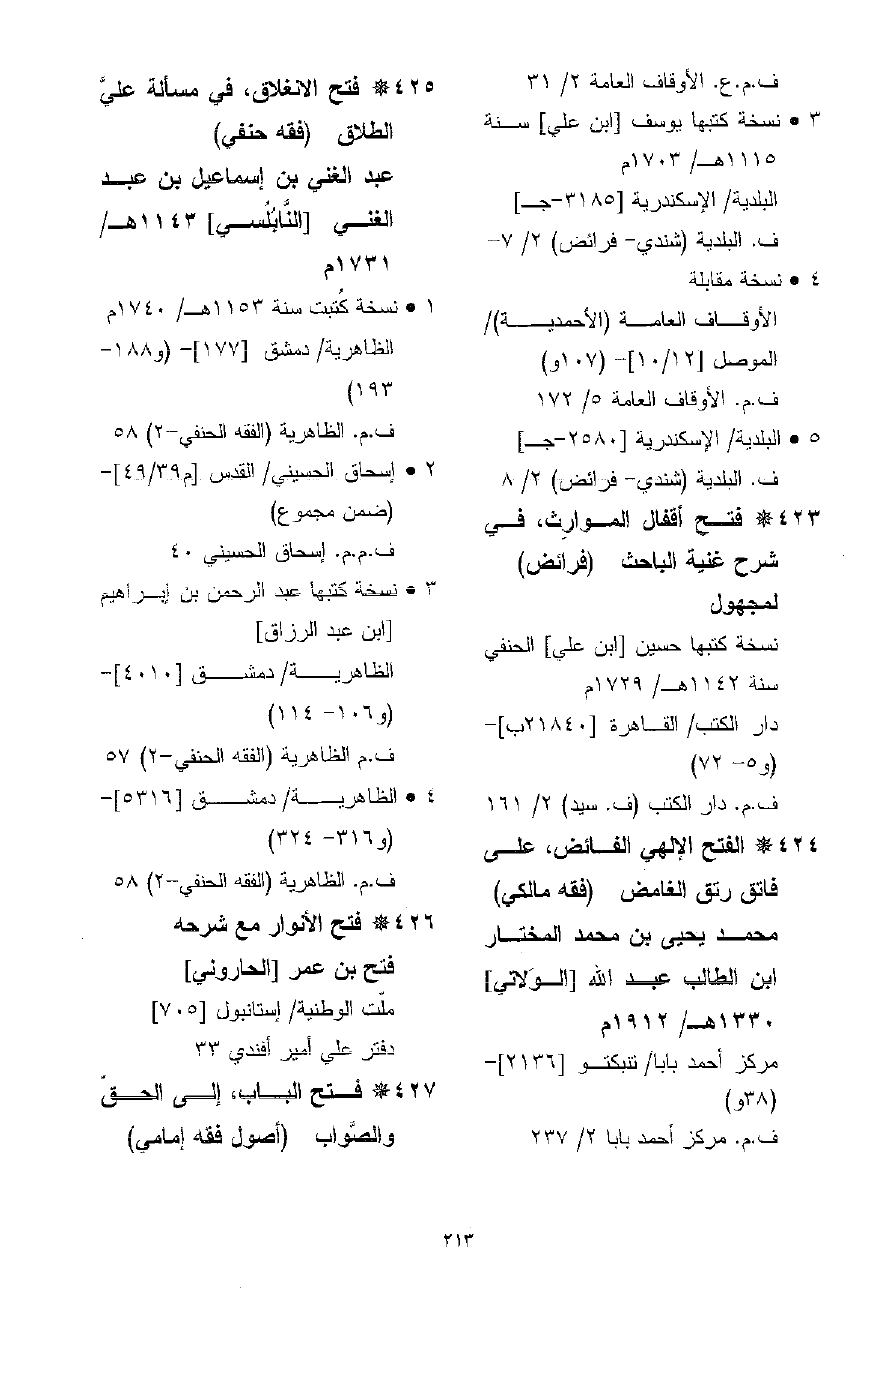 ف.م.ع. الأوقاف العامة ٢/ ٣١
٣ • نسخة كتبها يوسف [ابن علي] سنة
١١١٥هـ/ ١٧٠٣م
البلدية/ الإسكندرية [٣١٨٥-جـ]
ف. البلدية (شندي- فرائض) ٢/ ٧-
٤ • نسخة مقابلة
الأوقاف العامة (الأحمدية)/
الموصل [١٠/١٢]- (١٠٧و)
ف.م. الأوقاف العامة ٥/ ١٧٢
٥ • البلدية/ الإسكندرية [٢٥٨٠-جـ]
ف. البلدية (شندي- فرائض) ٢/ ٨
٤٢٣ * فتح أقفال الموارِث، في
شرح غنية الباحث (فرائض)
لمجهول
نسخة كتبها حسين [ابن علي] الحنفي
سنة ١١٤٢هـ/ ١٧٢٩م
دار الكتب/ القاهرة [٢١٨٤٠ب]-
(و٥- ٧٢)
ف.م. دار الكتب (ف. سيد) ٢/ ١٦١
٤٢٤ * الفتح الإلهي الفائض، على
فاتق رتق الغامض (فقه مالكي)
محمد يحيى بن محمد المختار
ابن الطالب عبد الله [الوَلاتي]
١٣٣٠هـ/ ١٩١٢م
مركز أحمد بابا/ تنبكتو [٢١٣٦]-
(٣٨و)
ف.م. مركز أحمد بابا ٢/ ٢٣٧
٤٢٥ * فتح الانغلاق، في مسألة عليَّ
الطلاق (فقه حنفي)
عبد الغني بن إسماعيل بن عبد
الغني [النَّابُلُسي] ١١٤٣هـ/
١٧٣١م
١ • نسخة كُتبت سنة ١١٥٣هـ/ ١٧٤٠م
الظاهرية/ دمشق [١٧٧]- (و١٨٨-
١٩٣)
ف.م. الظاهرية (الفقه الحنفي-٢) ٥٨
٢ • إسحاق الحسيني/ القدس [م٤٩/٣٩]-
(ضمن مجموع)
ف.م.م. إسحاق الحسيني ٤٠
٣ • نسخة كتبها عبد الرحمن بن إبراهيم
[ابن عبد الرزاق]
الظاهرية/ دمشق [٤٠١٠]-
(و١٠٦- ١١٤)
ف.م الظاهرية (الفقه الحنفي-٢) ٥٧
٤ • الظاهرية/ دمشق [٥٣١٦]-
(و٣١٦- ٣٢٤)
ف.م. الظاهرية (الفقه الحنفي-٢) ٥٨
٤٢٦ * فتح الأنوار مع شرحه
فتح بن عمر [الحاروني]
ملّت الوطنية/ إستانبول [٧٠٥]
دفتر علي أمير أفندي ٣٣
٤٢٧ * فتح الباب، إلى الحقّ
والصَّواب (أصول فقه إمامي)
٢١٣